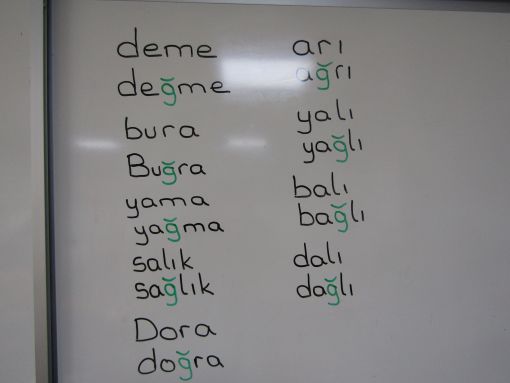 deme
değme
bura
Buğra
yama
yağma
salık
sağlık
Dora
doğra
arı
ağrı
yalı
yağlı
balı
bağlı
dalı
dağlı